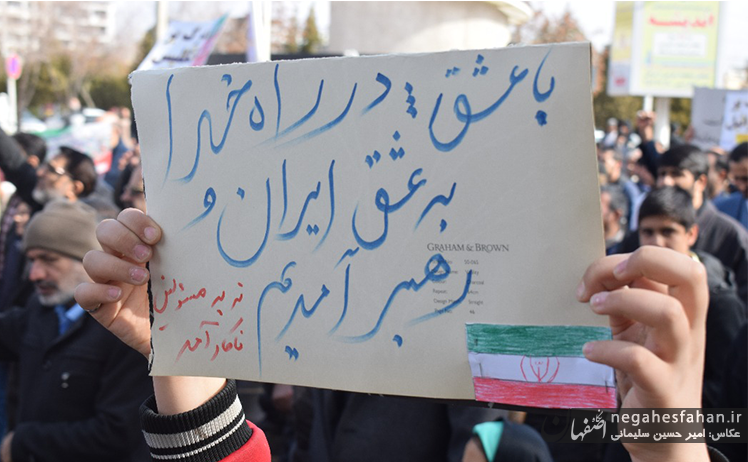 با عشق ؛ در راه خدا
به عشق ایران و
رهبر آمدیم
نه به مسئولین
ناکارآمد
GRAHAM & BROWN
negahesfahan.ir
عکاس: امیر حسین سلیمانی